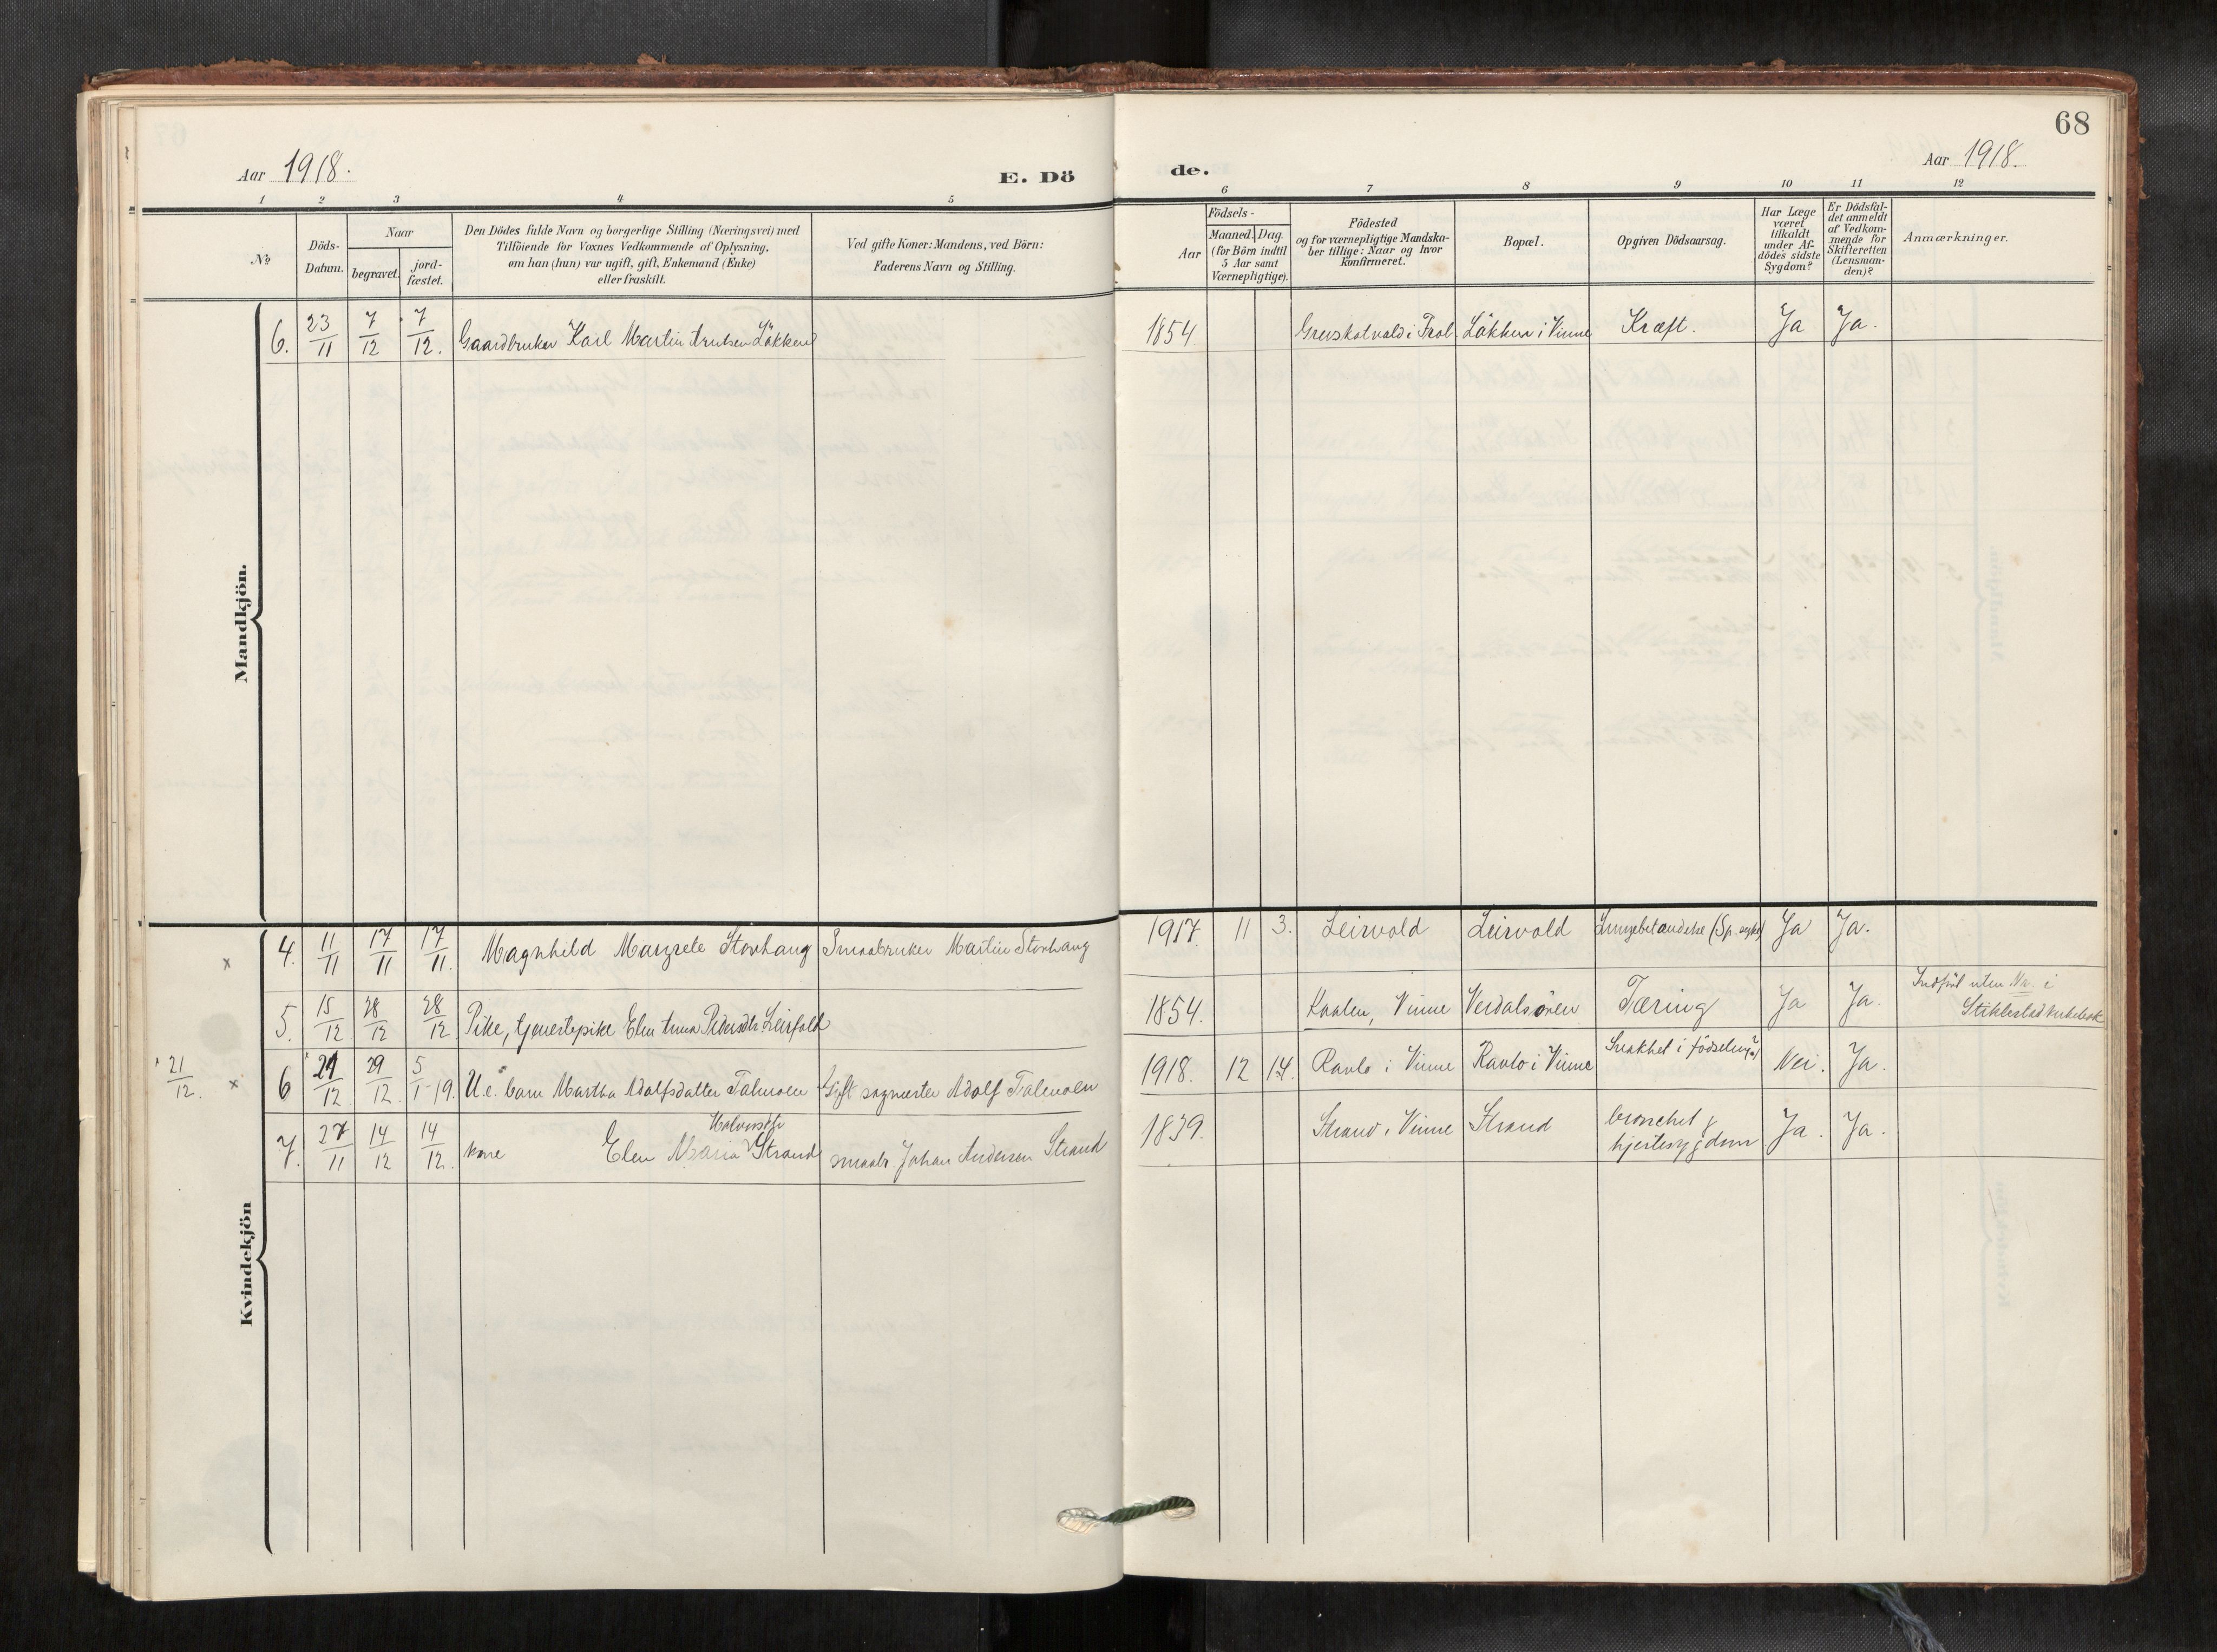 68
Aar 1918.
E. Dö de.
Aar 1918.
1 2 3 4 5 6 7 8 9 10 11 12
No
Döds-
Datum.
Naar
begravet.
jord-
fæstet.
Den Dödes fulde Navn og borgerlige Stilling (Næringsvei) med
Tilföiende for Voxnes Vedkommende af Oplysning,
om han (hun) var ugift, gift, Enkemand (Enke)
eller fraskilt.
Ved gifte Koner: Mandens, ved Börn:
Faderens Navn og Stilling.
Födsels-
Aar
Maaned. Dag.
(for Börn indtil
5 Aar samt
Værnepligtige).
Födested
og for værnepligtige Mandska-
ber tillige: Naar og hvor
konfirmeret.
Bopæl.
Opgiven Dödsaarsag.
Har Læge
været
tilkaldt
under Af-
dödes sidste
Sygdom?
Er Dödsfal-
det anmeldt
af Vedkom-
mende for
Skifteretten
(Lensman-
den)?
Anmærkninger.
Mandkjön.
6. 23/11 7/12 7/12. Gaardbruker Karl Martin Arntsen Løkken 1854 i Frol Løkken i Vinne Kræft. Ja Ja.
Kvindekjön
x 4. 11/11 17/11 17/11. Magnhild Margrete Storhaug Smaabruker Martin Storhaug 1917. 11 3. Leirvold Leirvold Lungebetændelse (Sp. syke) Ja Ja.
5. 15/12 28/12 28/12. Pike, tjenestepike Elen Anna Pedersdtr Leirfald 1854. Kaalen, Vinne Verdalsøren Tæring Ja Ja. Indført uten Nr. i
Stiklestad kirkebok
21/12. x 6 21/12 29/12. 5/1-19. U.e. barn Martha Adolfsdatter Dalmoen Gift Adolf Dalmoen 1918. 12 14. Ravlo i Vinne Ravlo i Vinne Svakhet i fødselen(?) Nei. Ja.
Halvorsdtr
7. 27/11 14/12 14/12. kone Elen Maria Strand smaabr. Johan Andersen Strand 1839. Strand i Vinne Strand bronchit &
hjertesygdom Ja. Ja.